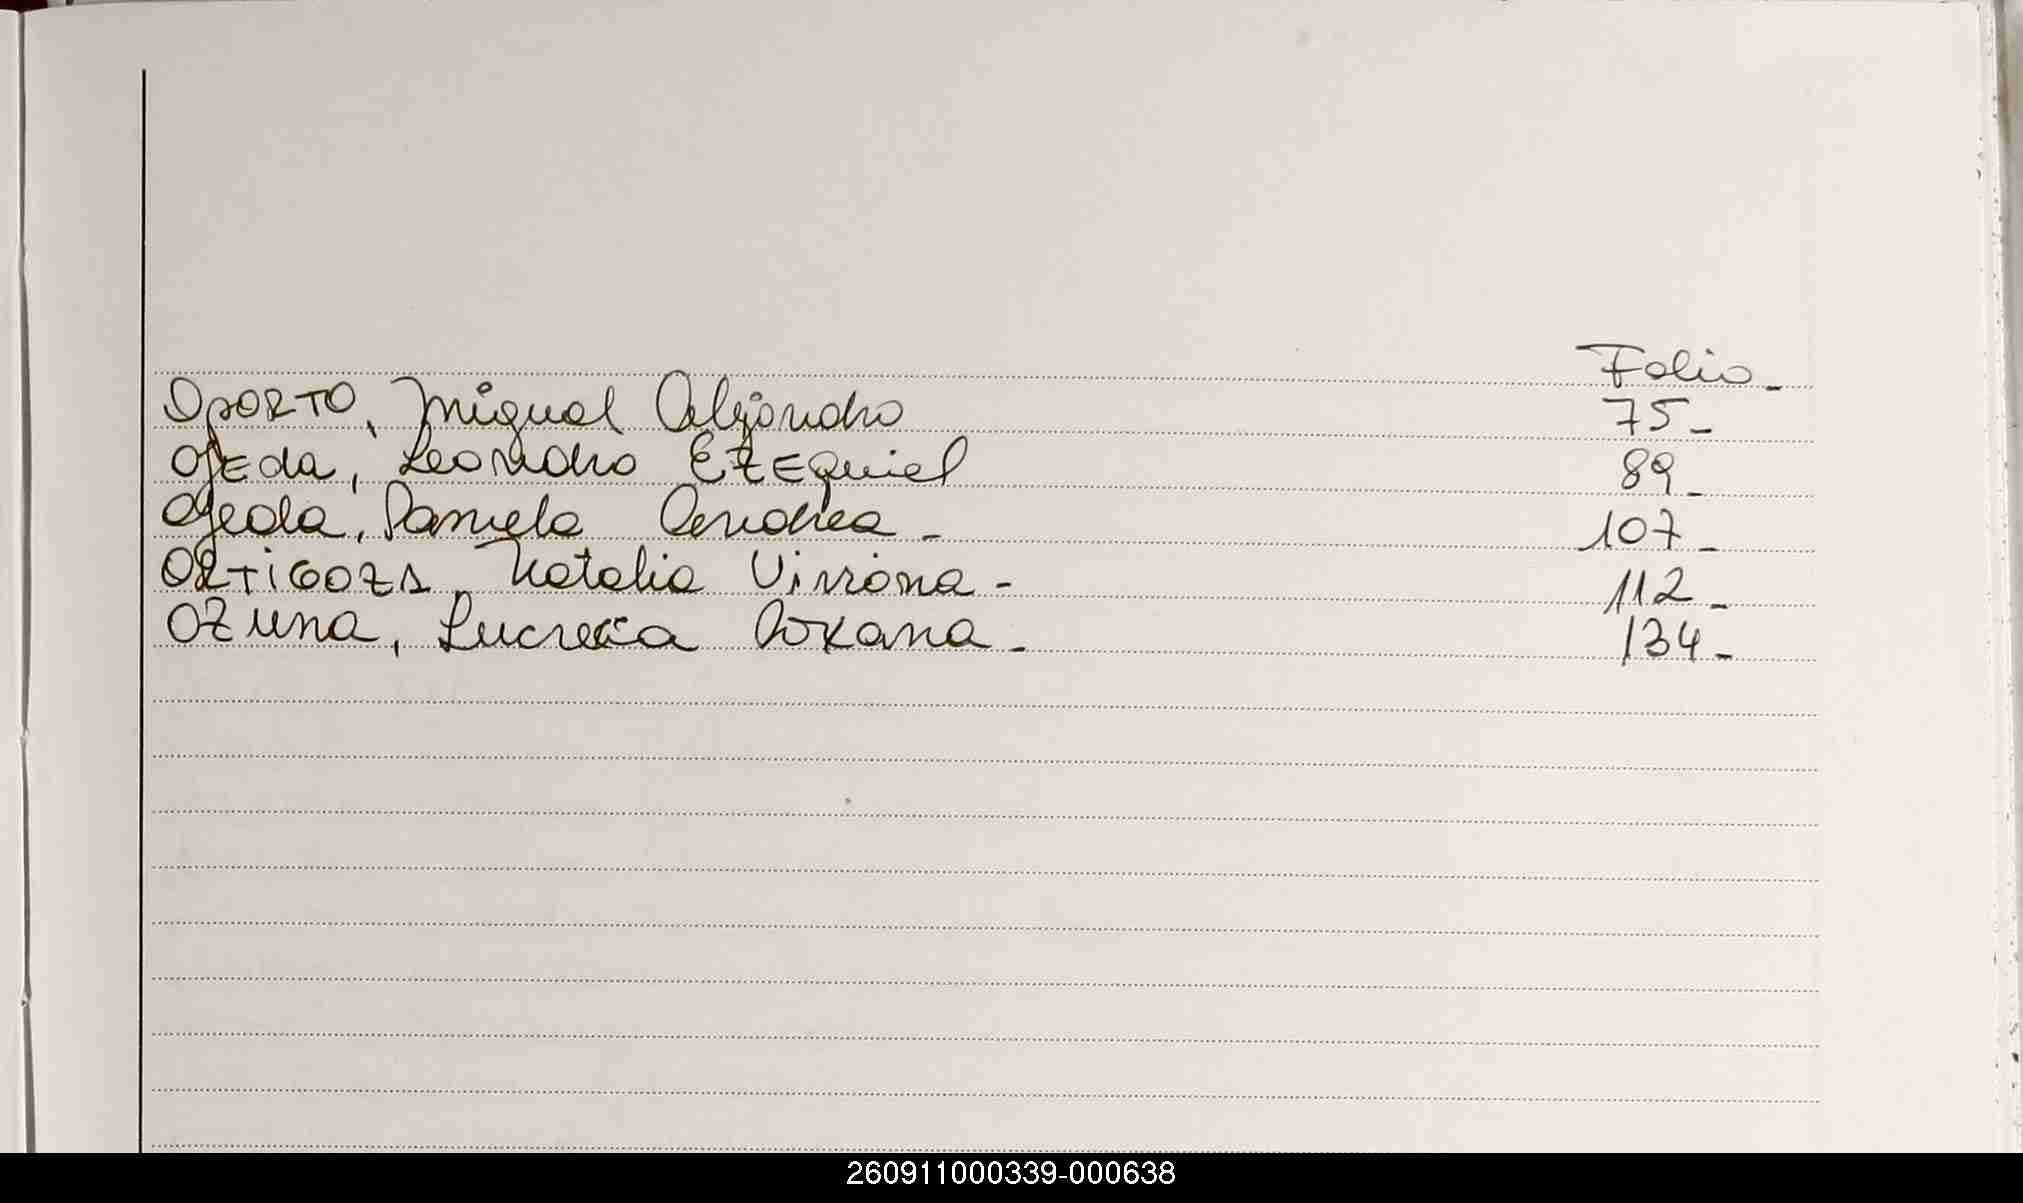 Folio-
OPORTO, Miguel Alejandro 75-
OJEda, Leandro EZEquiel 89-
Ojeda, Daniela Andrea- 107-
ORTiGOZA, Natalia Viviana- 112-
OZuna, Lucrecia Roxana- 134-
260911000339-000638